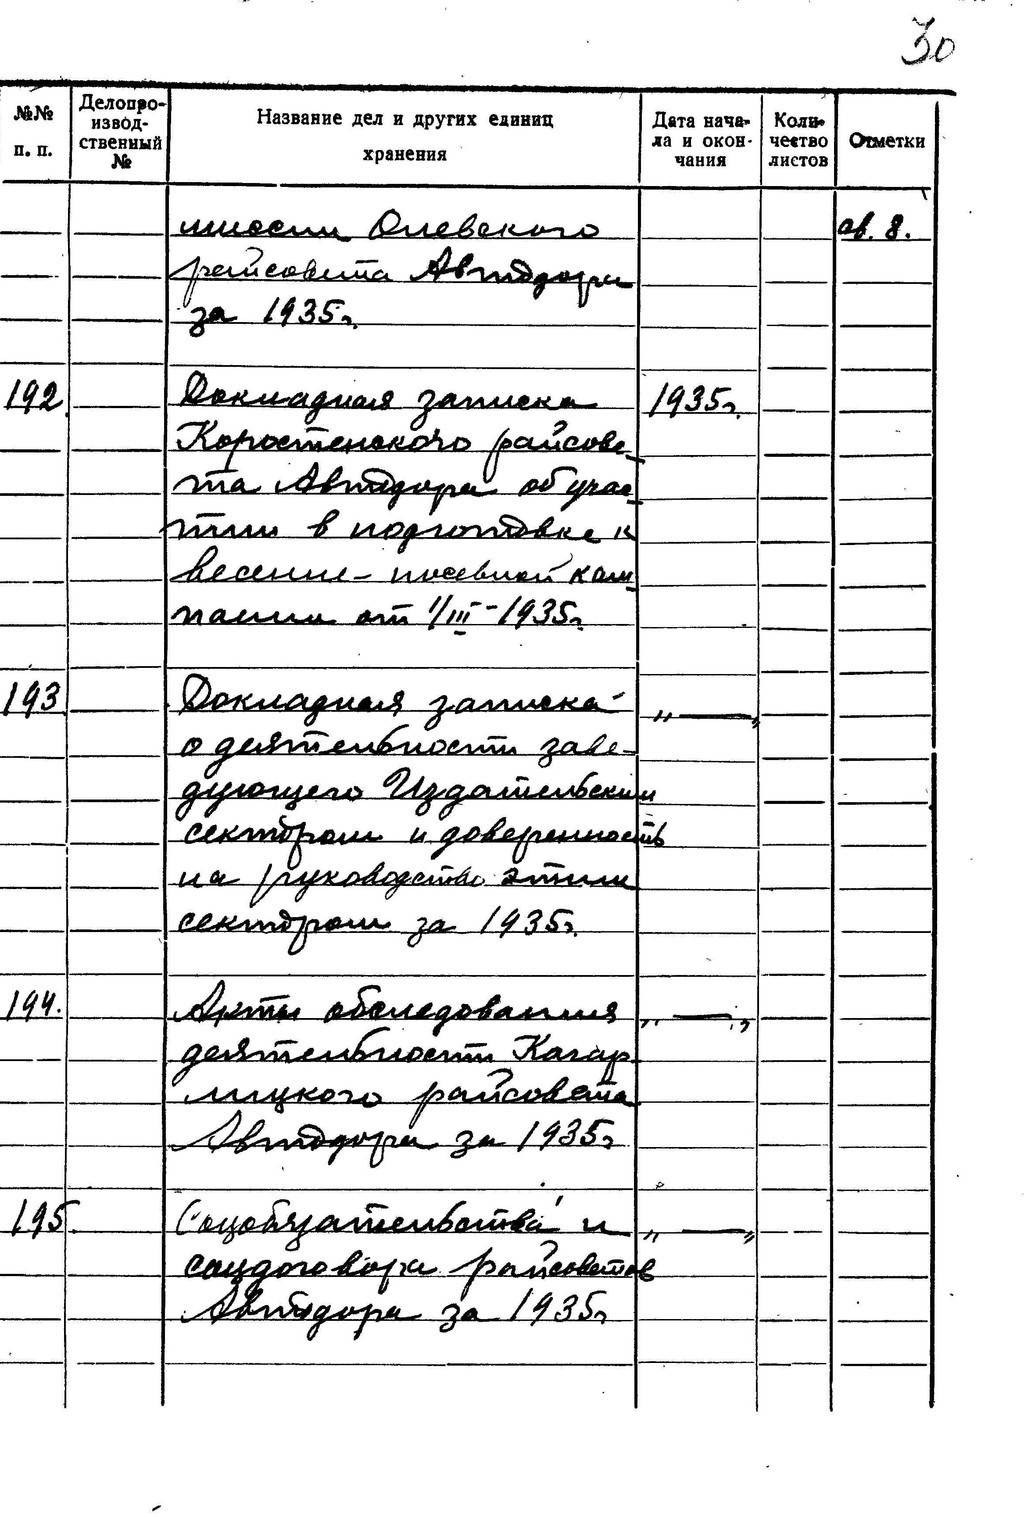 30
№№ п. п.
Делопро-
извод-
ственный
№
Название дел и других единиц
хранения
Дата нача-
ла и окон-
чания
Коли-
чество
листов
Отметки
миссии Олевского
райсовета Автодора
за 1935г.
192 Докладная записка 1935г.
Коростенского райсове-
та Автодора об учас-
тии в подготовке к
весенне-посевной кам-
пании от 1/III-1935г.
193 Докладная записка „ — „
о деятельности заве-
дующего Издательским
сектором и доверенность
на руководство этим
сектором за 1935г.
194. Акты обследования „ — „
деятельности Кагар-
лицкого райсовета
Автодора за 1935г
195. Соцобязательства и „ — „
соцдоговора райсоветов
Автодора за 1935г